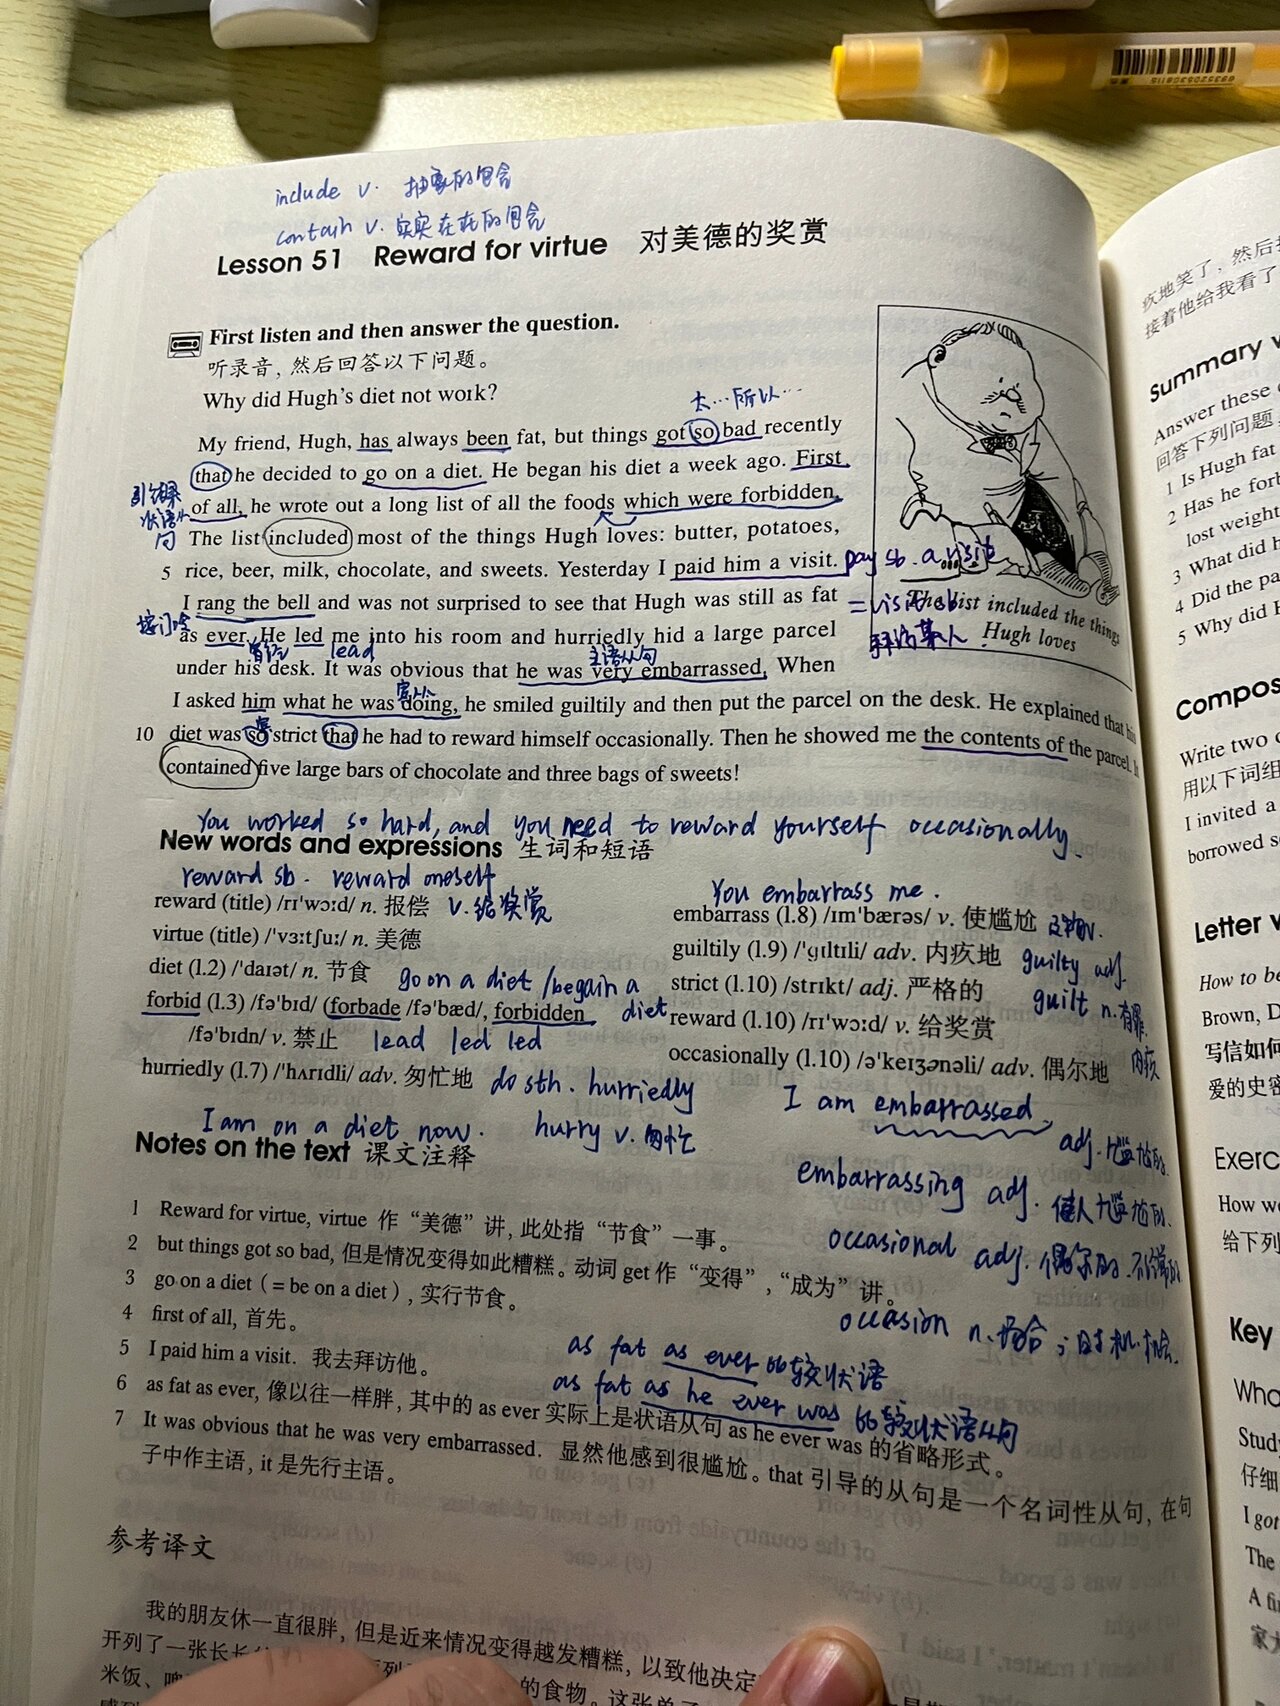 include v. 抽象的包含
contain v. 实实在在的包含
Lesson 51 Reward for virtue 对美德的奖赏
First listen and then answer the question.
听录音，然后回答以下问题。
Why did Hugh's diet not work?
太…所以…
My friend, Hugh, has always been fat, but things got so bad recently
that he decided to go on a diet. He began his diet a week ago. First
引结果
状语从
句
of all, he wrote out a long list of all the foods which were forbidden.
The list included most of the things Hugh loves: butter, potatoes,
5 rice, beer, milk, chocolate, and sweets. Yesterday I paid him a visit.
pay sb. a visit
= visit sb
拜访某人
The list included the things
Hugh loves
I rang the bell and was not surprised to see that Hugh was still as fat
按门铃
as ever. He led me into his room and hurriedly hid a large parcel
lead
主语从句
under his desk. It was obvious that he was very embarrassed. When
宾从
I asked him what he was doing, he smiled guiltily and then put the parcel on the desk. He explained that his
10 diet was so strict that he had to reward himself occasionally. Then he showed me the contents of the parcel. It
contained five large bars of chocolate and three bags of sweets!
You worked so hard, and you need to reward yourself occasionally.
New words and expressions 生词和短语
reward sb. reward oneself
reward (title) /rɪˈwɔːd/ n. 报偿 v. 给奖赏
virtue (title) /ˈvɜːtʃuː/ n. 美德
diet (l.2) /ˈdaɪət/ n. 节食 go on a diet / begain a
diet
forbid (l.3) /fəˈbɪd/ (forbade /fəˈbæd/, forbidden
/fəˈbɪdn/ v. 禁止 lead led led
hurriedly (l.7) /ˈhʌrɪdli/ adv. 匆忙地 do sth. hurriedly
I am on a diet now. hurry v. 匆忙
You embarrass me.
embarrass (l.8) /ɪmˈbærəs/ v. 使尴尬 及物v.
guiltily (l.9) /ˈgɪltɪli/ adv. 内疚地 guilty adj.
strict (l.10) /strɪkt/ adj. 严格的 guilt n. 有罪.
reward (l.10) /rɪˈwɔːd/ v. 给奖赏
occasionally (l.10) /əˈkeɪʒənəli/ adv. 偶尔地 内疚
I am embarrassed
adj. 尴尬的.
embarrassing adj. 使人尴尬的.
occasional adj. 偶尔的
occasion n. 场合；时机.机会.
Notes on the text 课文注释
1 Reward for virtue, virtue 作“美德”讲，此处指“节食”一事。
2 but things got so bad, 但是情况变得如此糟糕。动词 get 作“变得”，“成为”讲。
3 go on a diet（= be on a diet），实行节食。
4 first of all, 首先。
5 I paid him a visit. 我去拜访他。
as fat as ever 比较状语
as fat as he ever was 比较状语从句
6 as fat as ever, 像以往一样胖，其中的 as ever 实际上是状语从句 as he ever was 的省略形式。
7 It was obvious that he was very embarrassed. 显然他感到很尴尬。that 引导的从句是一个名词性从句，在句
子中作主语，it 是先行主语。
参考译文
我的朋友休一直很胖，但是近来情况变得越发糟糕，以致他决定
开列了一张长长
米饭、啤
的食物。这张单子
疚地笑了，然后
接着他给我看了
Summary
Answer these
回答下列问题
1 Is Hugh fat
2 Has he forb
lost weight
3 What did h
4 Did the pa
5 Why did
Compos
Write two
用以下词组
I invited a
borrowed s
Letter
How to be
Brown, D
写信如何
爱的史密
Exerc
How wo
给下列
Key
Wha
Study
仔细
I got
The
A fi
家
6935205308115